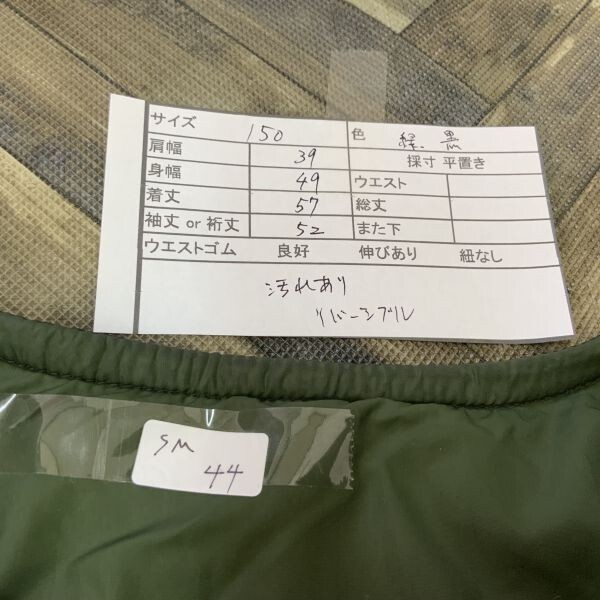 サイズ 150 色 緑、黒
肩幅 39 採寸 平置き
身幅 49 ウエスト
着丈 57 総丈
袖丈 or 裄丈 52 また下
ウエストゴム 良好 伸びあり 紐なし
汚れあり
リバーシブル
SM
44